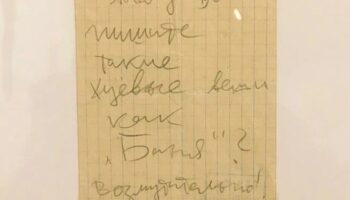 пишите
такие
хуёвые вещи
как
„Баня"?
Возмутительно!